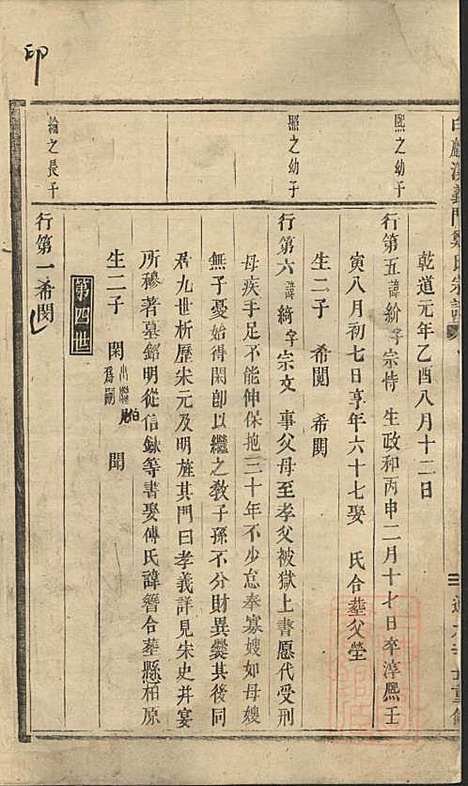 乾道元年乙酉八月十二日
熙之幼子
行第五諱紛字宗情 生政和丙申二月十七日卒淳熙壬
寅八月初七日享年六十七娶 氏合葬父塋
生二子 希閱 希閎
照之幼子
行第六諱綺字宗文 事父母至孝父被獄上書愿代受刑
母疾手足不能伸保抱三十年不少怠奉寡嫂如母嫂
無子憂始得閑卽以繼之敎子孫不分財異爨其後同
居九世析歷宋元及明旌其門曰孝義詳見宋史并宴
所穆著墓銘明從信錄等書娶傅氏諱簪合葬縣柏原
生二子 閑 出繼 為嗣 聞
第四世
綸之長子
行第一希閔
印